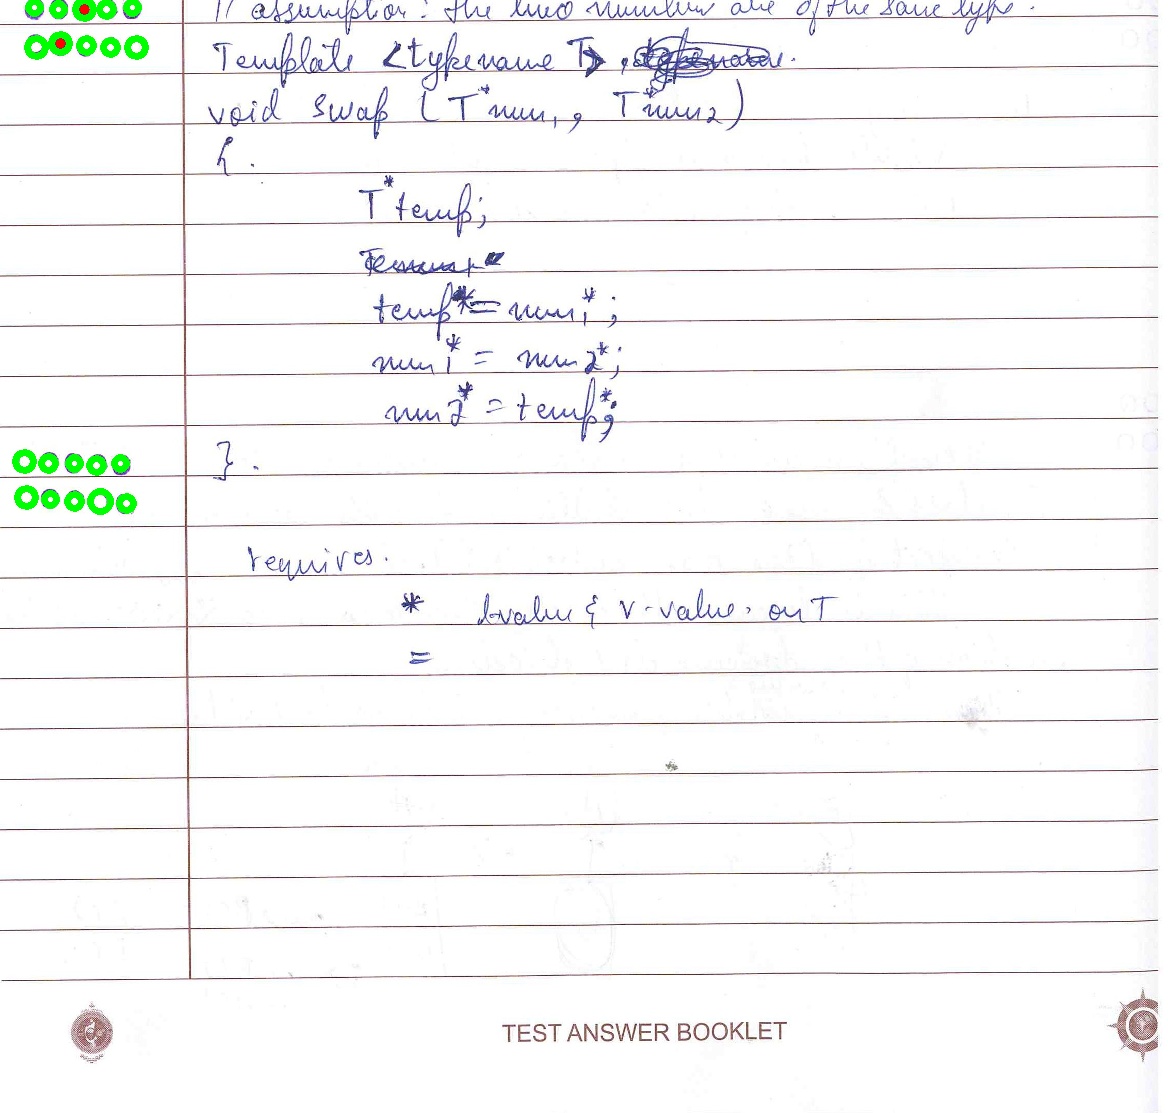 // assumption: the two number are of the same type.
Template <typename T>
void swap (T *num1, T *num2)
{.
T* temp;
temp* = num1*;
num1* = num2*;
num2* = temp*;
}.
requires.
* l-value & r-value. on T
=
TEST ANSWER BOOKLET